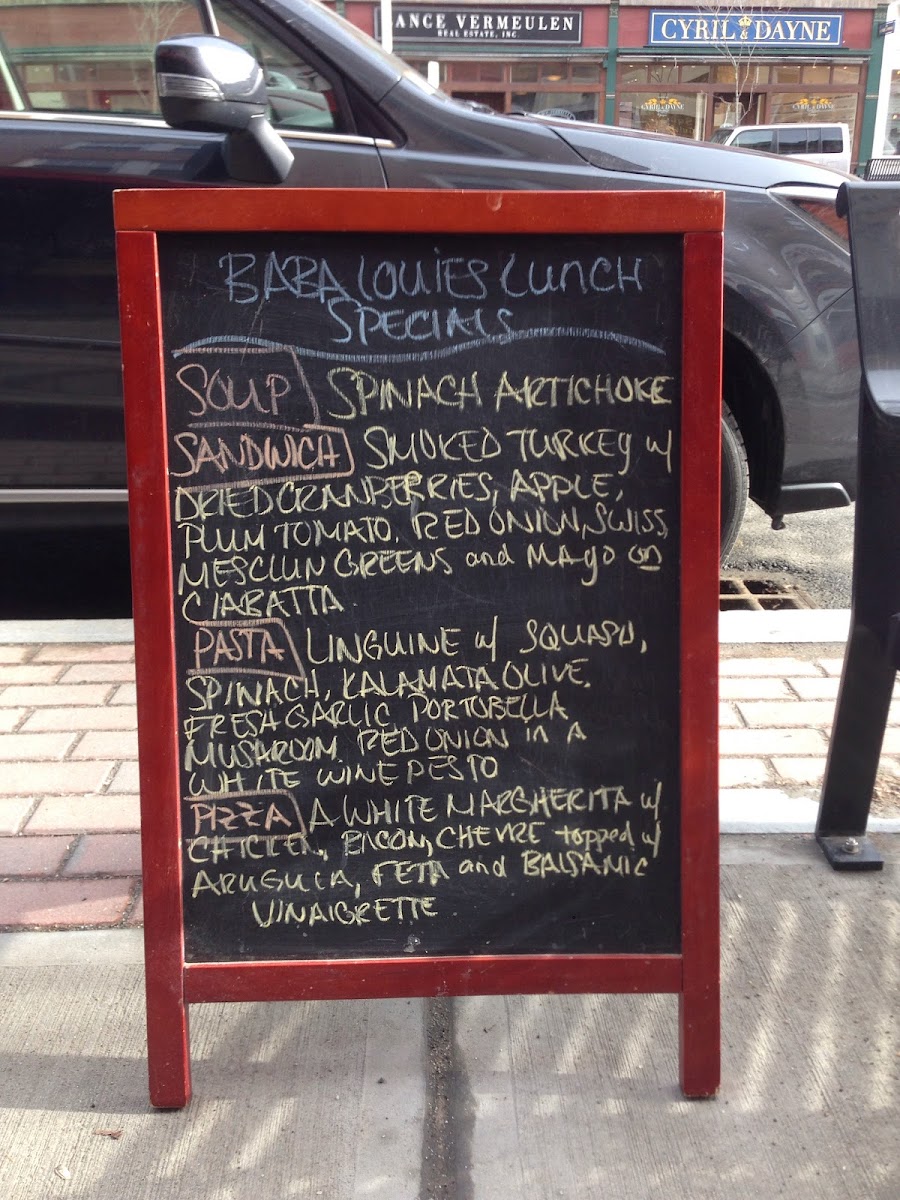 ANCE VERMEULEN
REAL ESTATE, INC.
CYRIL & DAYNE
BABA LOUIES LUNCH
SPECIALS
SOUP SPINACH ARTICHOKE
SANDWICH SMOKED TURKEY w/
DRIED CRANBERRIES, APPLE,
PLUM TOMATO, RED ONION, SWISS,
MESCLUN GREENS and MAYO on
CIABATTA
PASTA LINGUINE w/ SQUASH,
SPINACH, KALAMATA OLIVE,
FRESH GARLIC, PORTOBELLA
MUSHROOM, RED ONION in A
WHITE WINE PESTO
PIZZA A WHITE MARGHERITA w/
CHICKEN, BACON, CHEVRE topped w/
ARUGULA, FETA and BALSAMIC
VINAIGRETTE